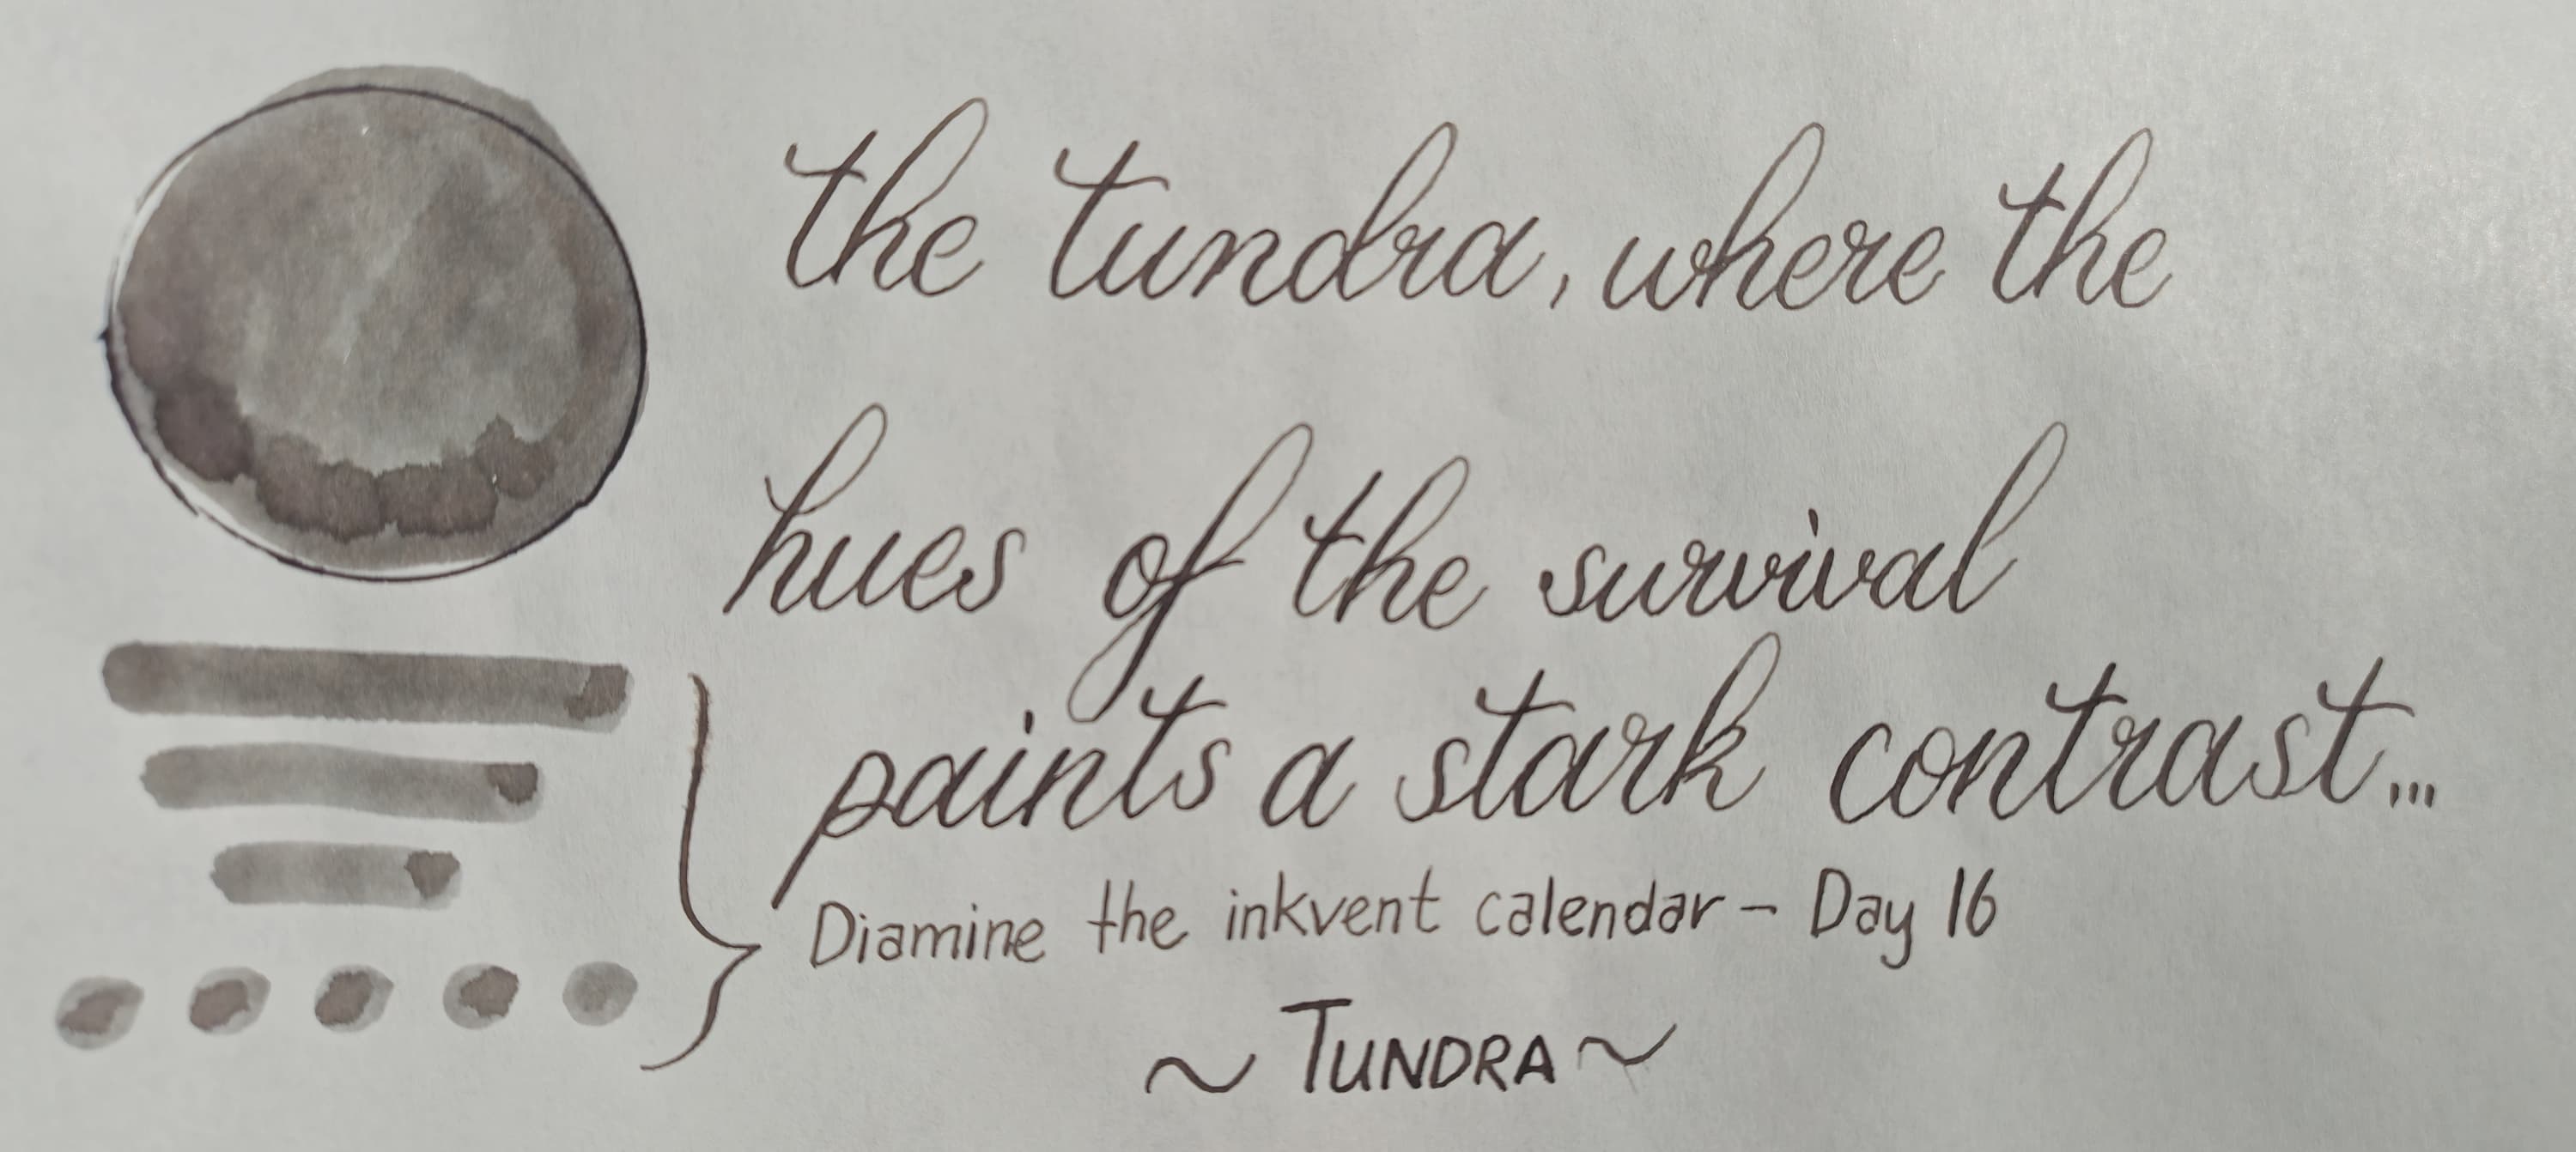 the tundra, where the
hues of the survival
paints a stark contrast...
Diamine the inkvent calendar - Day 16
~ TUNDRA ~